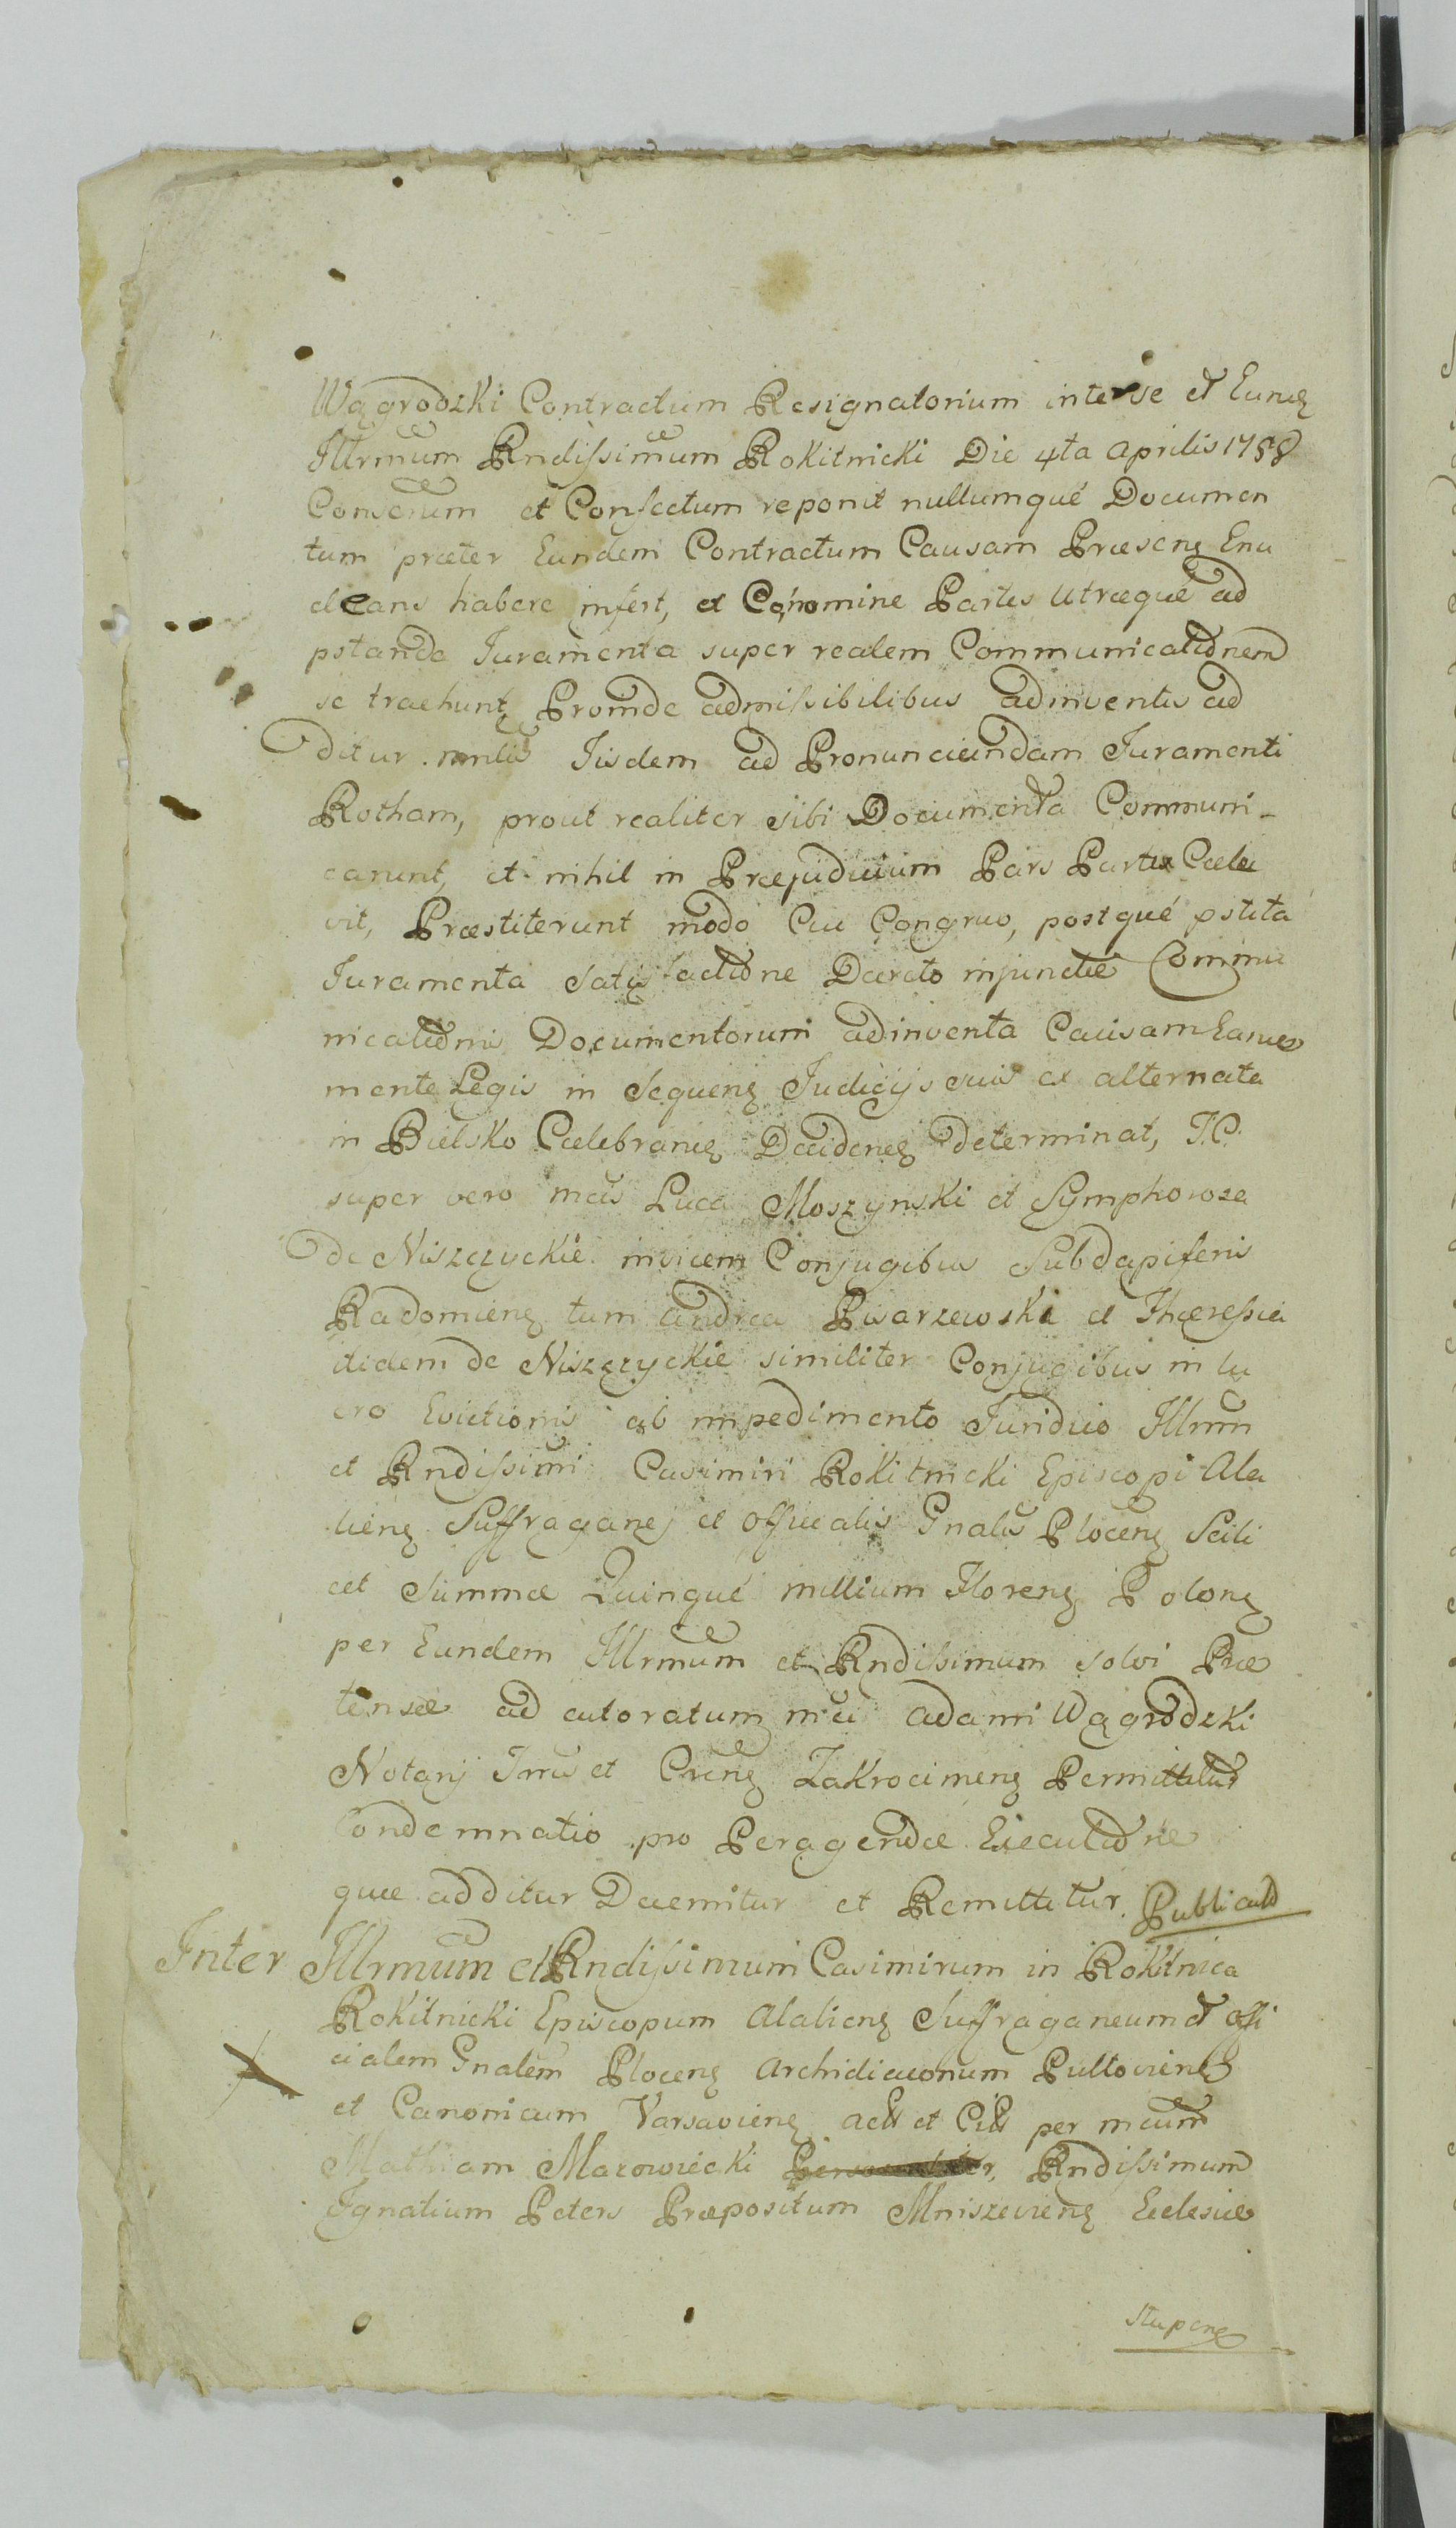 Wągrodzki Contractum Resignatorium interse et Eundẹ
Illrmum Rndissimum Rokitnicki Die 4ta Aprilis 1788
Conscrum et Confectum reponit nullumqué Documen
tum præter Eundem Contractum Causam Præsenẹ Enu
cleans habere infert, et Eo nomine Partes Utræqué ad
pstanda Juramenta super realem Communicationem
se traehunt, Proinde admissibilibus adinventis ad
ditur mnlis Iisdem ad Pronunciandam Juramenti
Rotham, prout realiter sibi Documenta Communi-
carunt, et nihil in Præjudicium Pars Partis Cæla
vit, Præstiterunt modo Cui Congruo, postqué pstita
Juramenta Satisfactione Decreto injunctæ Commu
nicationis Documentorum adinventa Causam Eandẹ
mente Legis in Sequenẹ Judicijs suis ex alternata
in Bielsko Cælebranẹ Decidenẹ determinat, I.C.
super vero mcis Luca Moszynski et Symphorosa
de Niszczyckie invicem Conjugibus Subdapiferis
Radomienẹ tum Andrea Pwarzewski et Thæressia
itidem de Niszczyckie similiter Conjugibus in lu
cro Evictionis ab impedimento Juridico Illrmi
et Rndissimi Casimiri Rokitnicki Episcopi Ala
lienẹ Suffraganej et Officialis Gnalis Plocenẹ Scili
cet Summæ Quinqué millium Florenẹ Polonẹ
per Eundem Illrmum et Rndissimum solvi Præ
tensæ ad actoratum mci Adami Wągrodzki
Notarij Trris et Crensẹ Zakrocimenẹ Permittitur
Condemnatio pro Peragenda Executione
quæ additur Decernitur et Remittitur. Publicat
Inter Illrmum et Rndissimum Casimirum in Rokitnica
Rokitnicki Episcopum Alalienẹ Suffraganeum et Offi
cialem Gnalem Plocenẹ Archidiaconum Pultovienẹ
et Canonicum Varsavienẹ Actt et Citt per mcum
Mathiam Mazowiecki Rndissimum
Ignatium Peters Præpositum Mniszevienẹ Eclesiæ
Stupenẹ